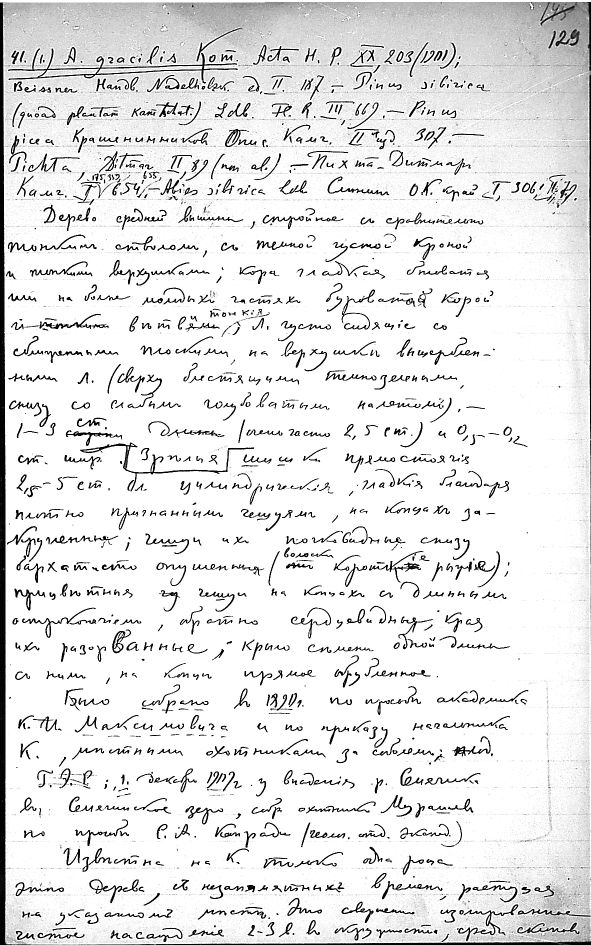 129
41. (1.) A. gracilis Kom. Acta H. P. XX, 203 (1901);
Beissner Handb. Nadelholzk. ed. II. 187. – Pinus sibirica
(quoad plantam Kamtschat.) Ldb. Fl. R. III, 669. – Pinus
picea Крашенинников Опис. Камч. II 307. –
Pichta, Ditmar II, 89 – Пихта – Дитмар
Камч. I, 175, 353, 654, 655, – Abies sibirica Ldb Слюнин Ох. Кам. край I, 306;
Дерево средней вышины, стройное съ сравнительно
тонкимъ стволомъ, съ темной густой кроной
и тонкими верхушками; кора гладкая
на более молодыхъ частяхъ буроватой корой
тонкія; Л. густо сидящіе со
плоскими, на верхушкѣ выщерблен-
ными Л. (сверху блестящими темнозелеными,
снизу со слабымъ голубоватымъ налетомъ), –
1–3 ст. длины (очень часто 2,5 ст.) и 0,5–0,2
ст. шир. Зрѣлыя шишки прямостоячія
2,5–5 ст. дл цилиндрическія, гладкія благодаря
плотно чешуямъ, на концахъ за-
кругленныя; чешуи ихъ почковидныя снизу
бархатисто опушенныя (волоски короткіе рыжіе);
прицвѣтныя чешуи на концахъ съ длиннымъ
остроконечіемъ, обратно сердцевидныя, края
ихъ разорванные; крыло сѣмени одной длины
съ нимъ, на концѣ прямое обрубленное.
Было собрано въ 1890г. по просьбѣ академика
К. И. Максимовича и по приказу начальника
К., мѣстными охотниками за соболемъ;
1. Декабря 1909г. у впаденія р. Семячик
въ Семячинское озеро, собр охотникъ Мурашев
по просьбѣ С. А. Конради (геол. отд. Экспед.)
Извѣстна на К. только одна роща
этого дерева, съ незапамятныхъ временъ, растущая
на указанномъ мѣстѣ. Это совершенно изолированное
чистое насажденіе 2–3 в. въ окружности, средь